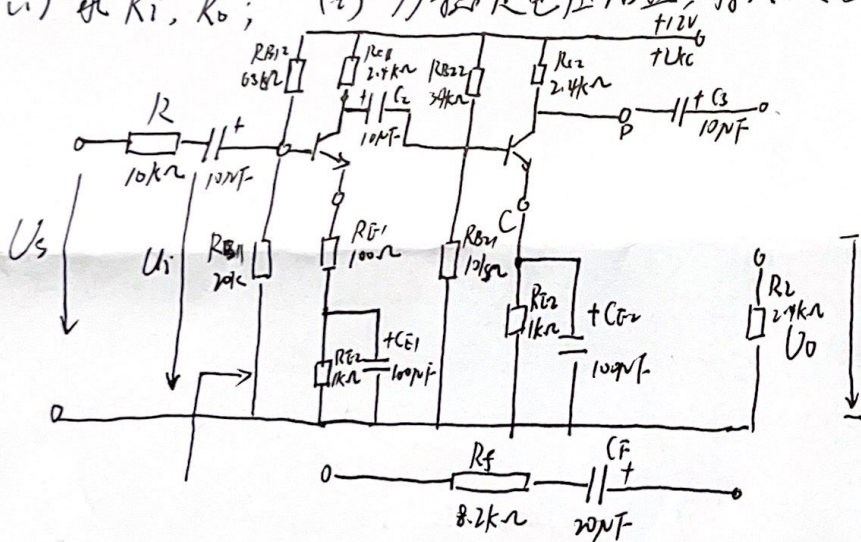 Ri, Ro;
+12V
+Ucc
RB12
63kΩ
Rc11
2.4kΩ
RB22
39kΩ
Rc2
2.4kΩ
R
10kΩ
+
10μF
+ C2
10μF
P
+ C3
10μF
Us
Ui
RB11
20k
RE1
100Ω
RB21
10kΩ
C
RE2
1kΩ
+CE1
100μF
RE2
1kΩ
+ CE2
100μF
RL
2.4kΩ
Uo
Rf
8.2kΩ
CF
+
20μF